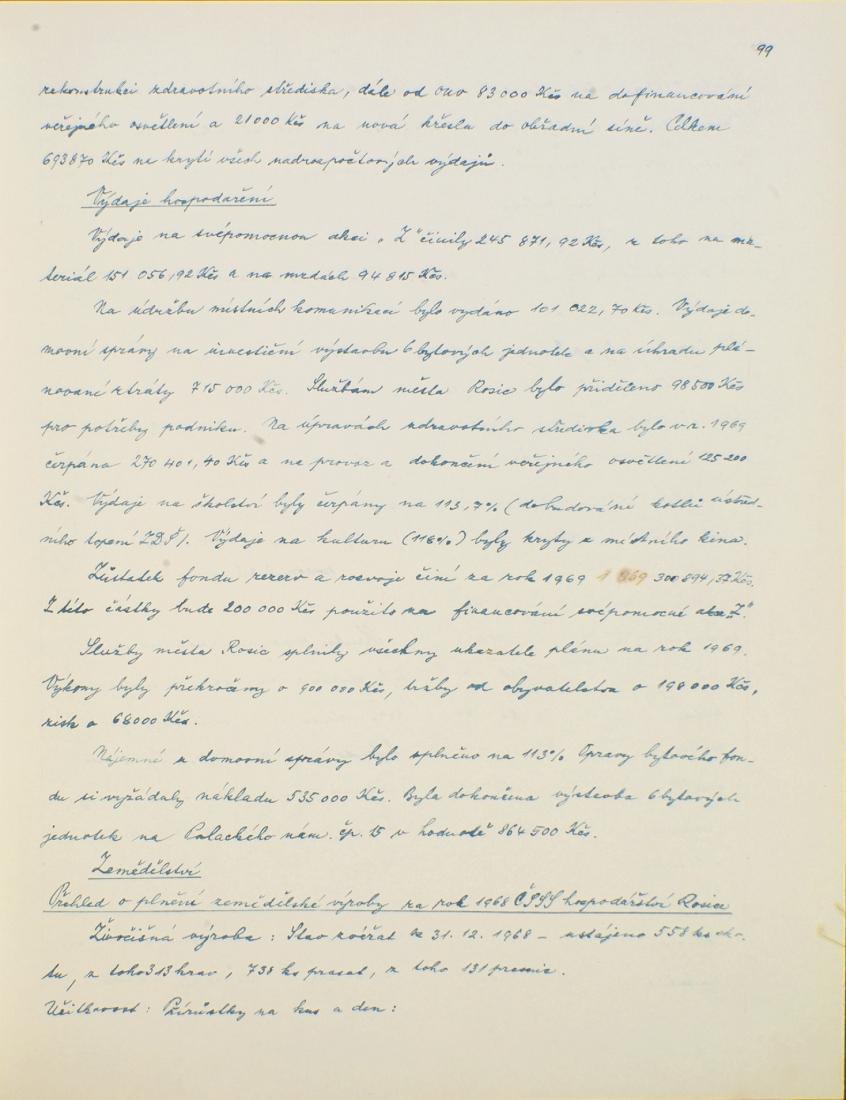 99
rekonstrukci zdravotního střediska, dále od ONV 83 000 Kčs na dofinancování
veřejného osvětlení a 21 000 Kčs na nová křesla do obřadní síně. Celkem
693 870 Kčs na krytí všech nadrozpočtových výdajů.
Výdaje hospodaření
Výdaje na svépomocnou akci „Z“ činily 245 871,92 Kčs, z toho na ma-
teriál 151 056,92 Kčs a na mzdách 94 815 Kčs.
Na údržbu místních komunikací bylo vydáno 101 022,70 Kčs. Výdaje do-
movní správy na investiční výstavbu 6 bytových jednotek a na úhradu plá-
nované ztráty 715 000 Kčs. Službám města Rosic bylo přiděleno 98 500 Kčs
pro potřeby podniku. Na úpravách zdravotního střediska bylo v r. 1969
čerpáno 270 401,40 Kčs a na provoz a dokončení veřejného osvětlení 125 200
Kčs. Výdaje na školství byly čerpány na 113,7% (dobudování kotlů ústřed-
ního topení ZDŠ). Výdaje na kulturu (116%) byly kryty z místního kina.
Zůstatek fondu rezerv a rozvoje činí za rok 1969 1 969 300 894,37 Kčs.
Z této částky bude 200 000 Kčs použito na financování svépomocné akce „Z“.
Služby města Rosic splnily všechny ukazatele plánu na rok 1969.
Výkony byly překročeny o 900 000 Kčs, tržby od obyvatelstva o 198 000 Kčs,
zisk o 68 000 Kčs.
Nájemné z domovní správy bylo splněno na 113% Opravy bytového fon-
du si vyžádaly nákladu 535 000 Kčs. Byla dokončena výstavba 6 bytových
jednotek na Palackého nám. čp. 15 v hodnotě 864 500 Kčs.
Zemědělství
Přehled o plnění zemědělské výroby za rok 1968 ČSSS hospodářství Rosice
Živočišná výroba: Stav zvířat k 31. 12. 1968 – ustájeno 558 ks sko-
tu, z toho 313 krav, 738 ks prasat, z toho 131 prasnic.
Užitkovost: Přírůstky na kus a den: